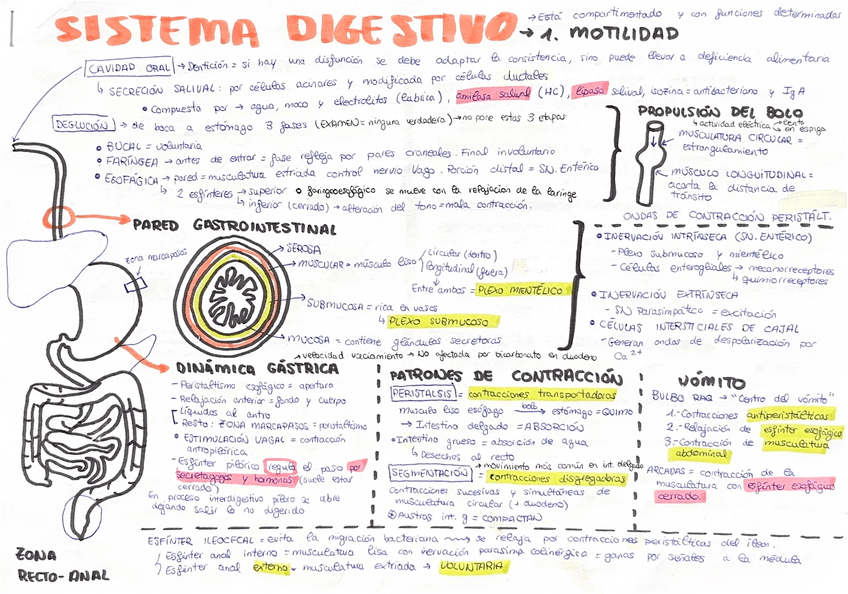 SISTEMA DIGESTIVO
→ Está compartimentado y con funciones determinadas
→ 1. MOTILIDAD
CAVIDAD ORAL → Dentición = si hay una disfunción se debe adaptar la consistencia, sino puede llevar a deficiencia alimentaria
↳ SECRECIÓN SALIVAL: por células acinares y modificada por células ductales
• Compuesta por → agua, moco y electrolitos (lubrica), amilasa salival (HC), lipasa salival, isozina = antibacteriano y IgA
DEGLUCIÓN → de boca a estómago 3 fases (EXAMEN = ninguna verdadera) → no pore estas 3 etapas
• BUCAL = voluntaria
• FARÍNGEA → antes de entrar = fase refleja por pares craneales. Final involuntario
• ESOFÁGICA → pared = musculatura estriada control nervio Vago. Porción distal = SN. Entérico
↳ 2 esfínteres → superior • faringoesofágico se mueve con la relajación de la laringe
↳ inferior (cerrado) → alteración del tono = mala contracción.
PROPULSIÓN DEL BOLO
↳ actividad eléctrica → lenta
→ en espiga
MUSCULATURA CIRCULAR = estrangulamiento
MÚSCULO LONGITUDINAL = acorta la distancia de tránsito
ONDAS DE CONTRACCIÓN PERISTÁLT.
PARED GASTROINTESTINAL
zona marcapasos
→ SEROSA
→ MUSCULAR = músculo liso
circular (dentro)
longitudinal (fuera)
Entre ambos = PLEXO MIENTÉLICO
SUBMUCOSA = rica en vasos
↳ PLEXO SUBMUCOSO
MUCOSA = contiene glándulas secretoras
• INERVACIÓN INTRÍNSECA (SN. ENTÉRICO)
- Plexo submucoso y mientélico
- Células enterogliales → mecanorreceptores
↳ quimiorreceptores
• INERVACIÓN EXTRÍNSECA
- SN Parasimpático = excitación
• CÉLULAS INTERSTICIALES DE CAJAL
- Generan ondas de despolarización por Ca²⁺
↗ velocidad vaciamiento → NO afectada por bicarbonato en duodeno
DINÁMICA GÁSTRICA
- Peristaltismo esofágico = apertura
- Relajación anterior = fondo y cuerpo
Líquidos al antro
Resto: ZONA MARCAPASOS = peristaltismo
• ESTIMULACIÓN VAGAL = contracción antropilórica
- Esfínter pilórico regula el paso por secretagogos y hormonas (suele estar cerrado)
En proceso interdigestivo píloro se abre dejando salir lo no digerido
PATRONES DE CONTRACCIÓN
PERISTALSIS = contracciones transportadoras
músculo liso esófago → bolo → estómago = QUIMO
→ Intestino delgado = ABSORCIÓN
• Intestino grueso = absorción de agua
↳ Desechos al recto
→ movimiento más común en int. delgado
SEGMENTACIÓN = contracciones disgregadoras
Contracciones sucesivas y simultáneas de musculatura circular (↑ duodeno)
Austros int. g = COMPACTAN
VÓMITO
BULBO RAQ → "Centro del vómito"
1.- Contracciones antiperistálticas
2.- Relajación de esfínter esofágico
3.- Contracción de musculatura abdominal
ARCADAS = contracción de la musculatura con esfínter esofágico cerrado
ZONA
RECTO-ANAL
ESFÍNTER ILEOCECAL = evita la migración bacteriana → se relaja por contracciones peristálticas del íleon.
Esfínter anal interno = musculatura lisa con inervación parasimp colinérgico = ganas por señales a la médula
Esfínter anal externo = musculatura extriada → VOLUNTARIA